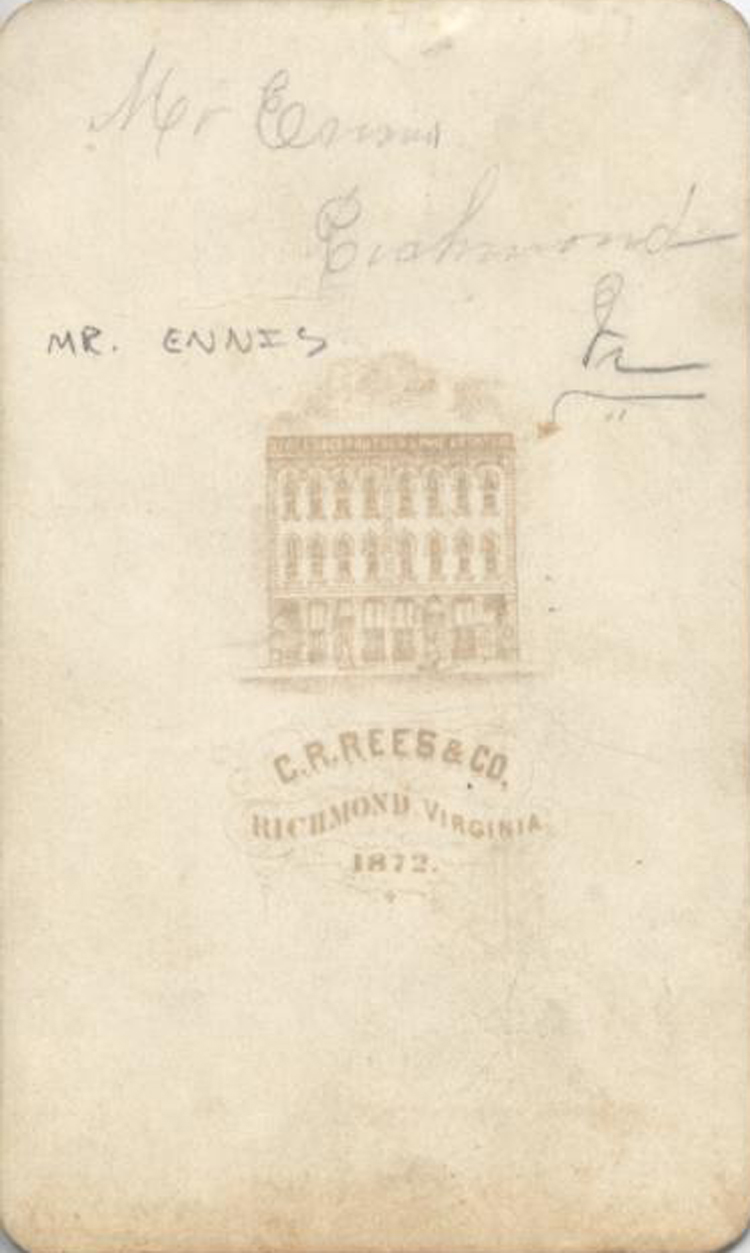 Mr Ennis
Richmond
Va
MR. ENNIS
C.R. REES & CO.
RICHMOND VIRGINIA
1872.